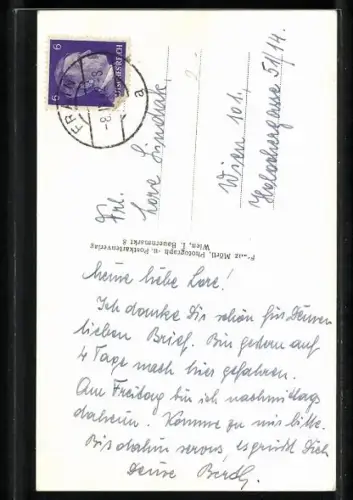 6
6
DEUTSCHES REICH
FRAIN
8
a
Frl.
Lore Lindtak,
Wien 101,
51/14.
F...nz Mörtl, Photograph- u. Postkartenverlag
Wien, I. Bauernmarkt 8
Meine liebe Lore!
Ich danke Dir schön für Deinen
lieben Brief. Bin gestern auf
4 Tage nach hier gefahren.
Am Freitag bin ich nachmittags
daheim. Komme zu mir bitte.
Bis dahin servus, es grüßt Dich
Deine